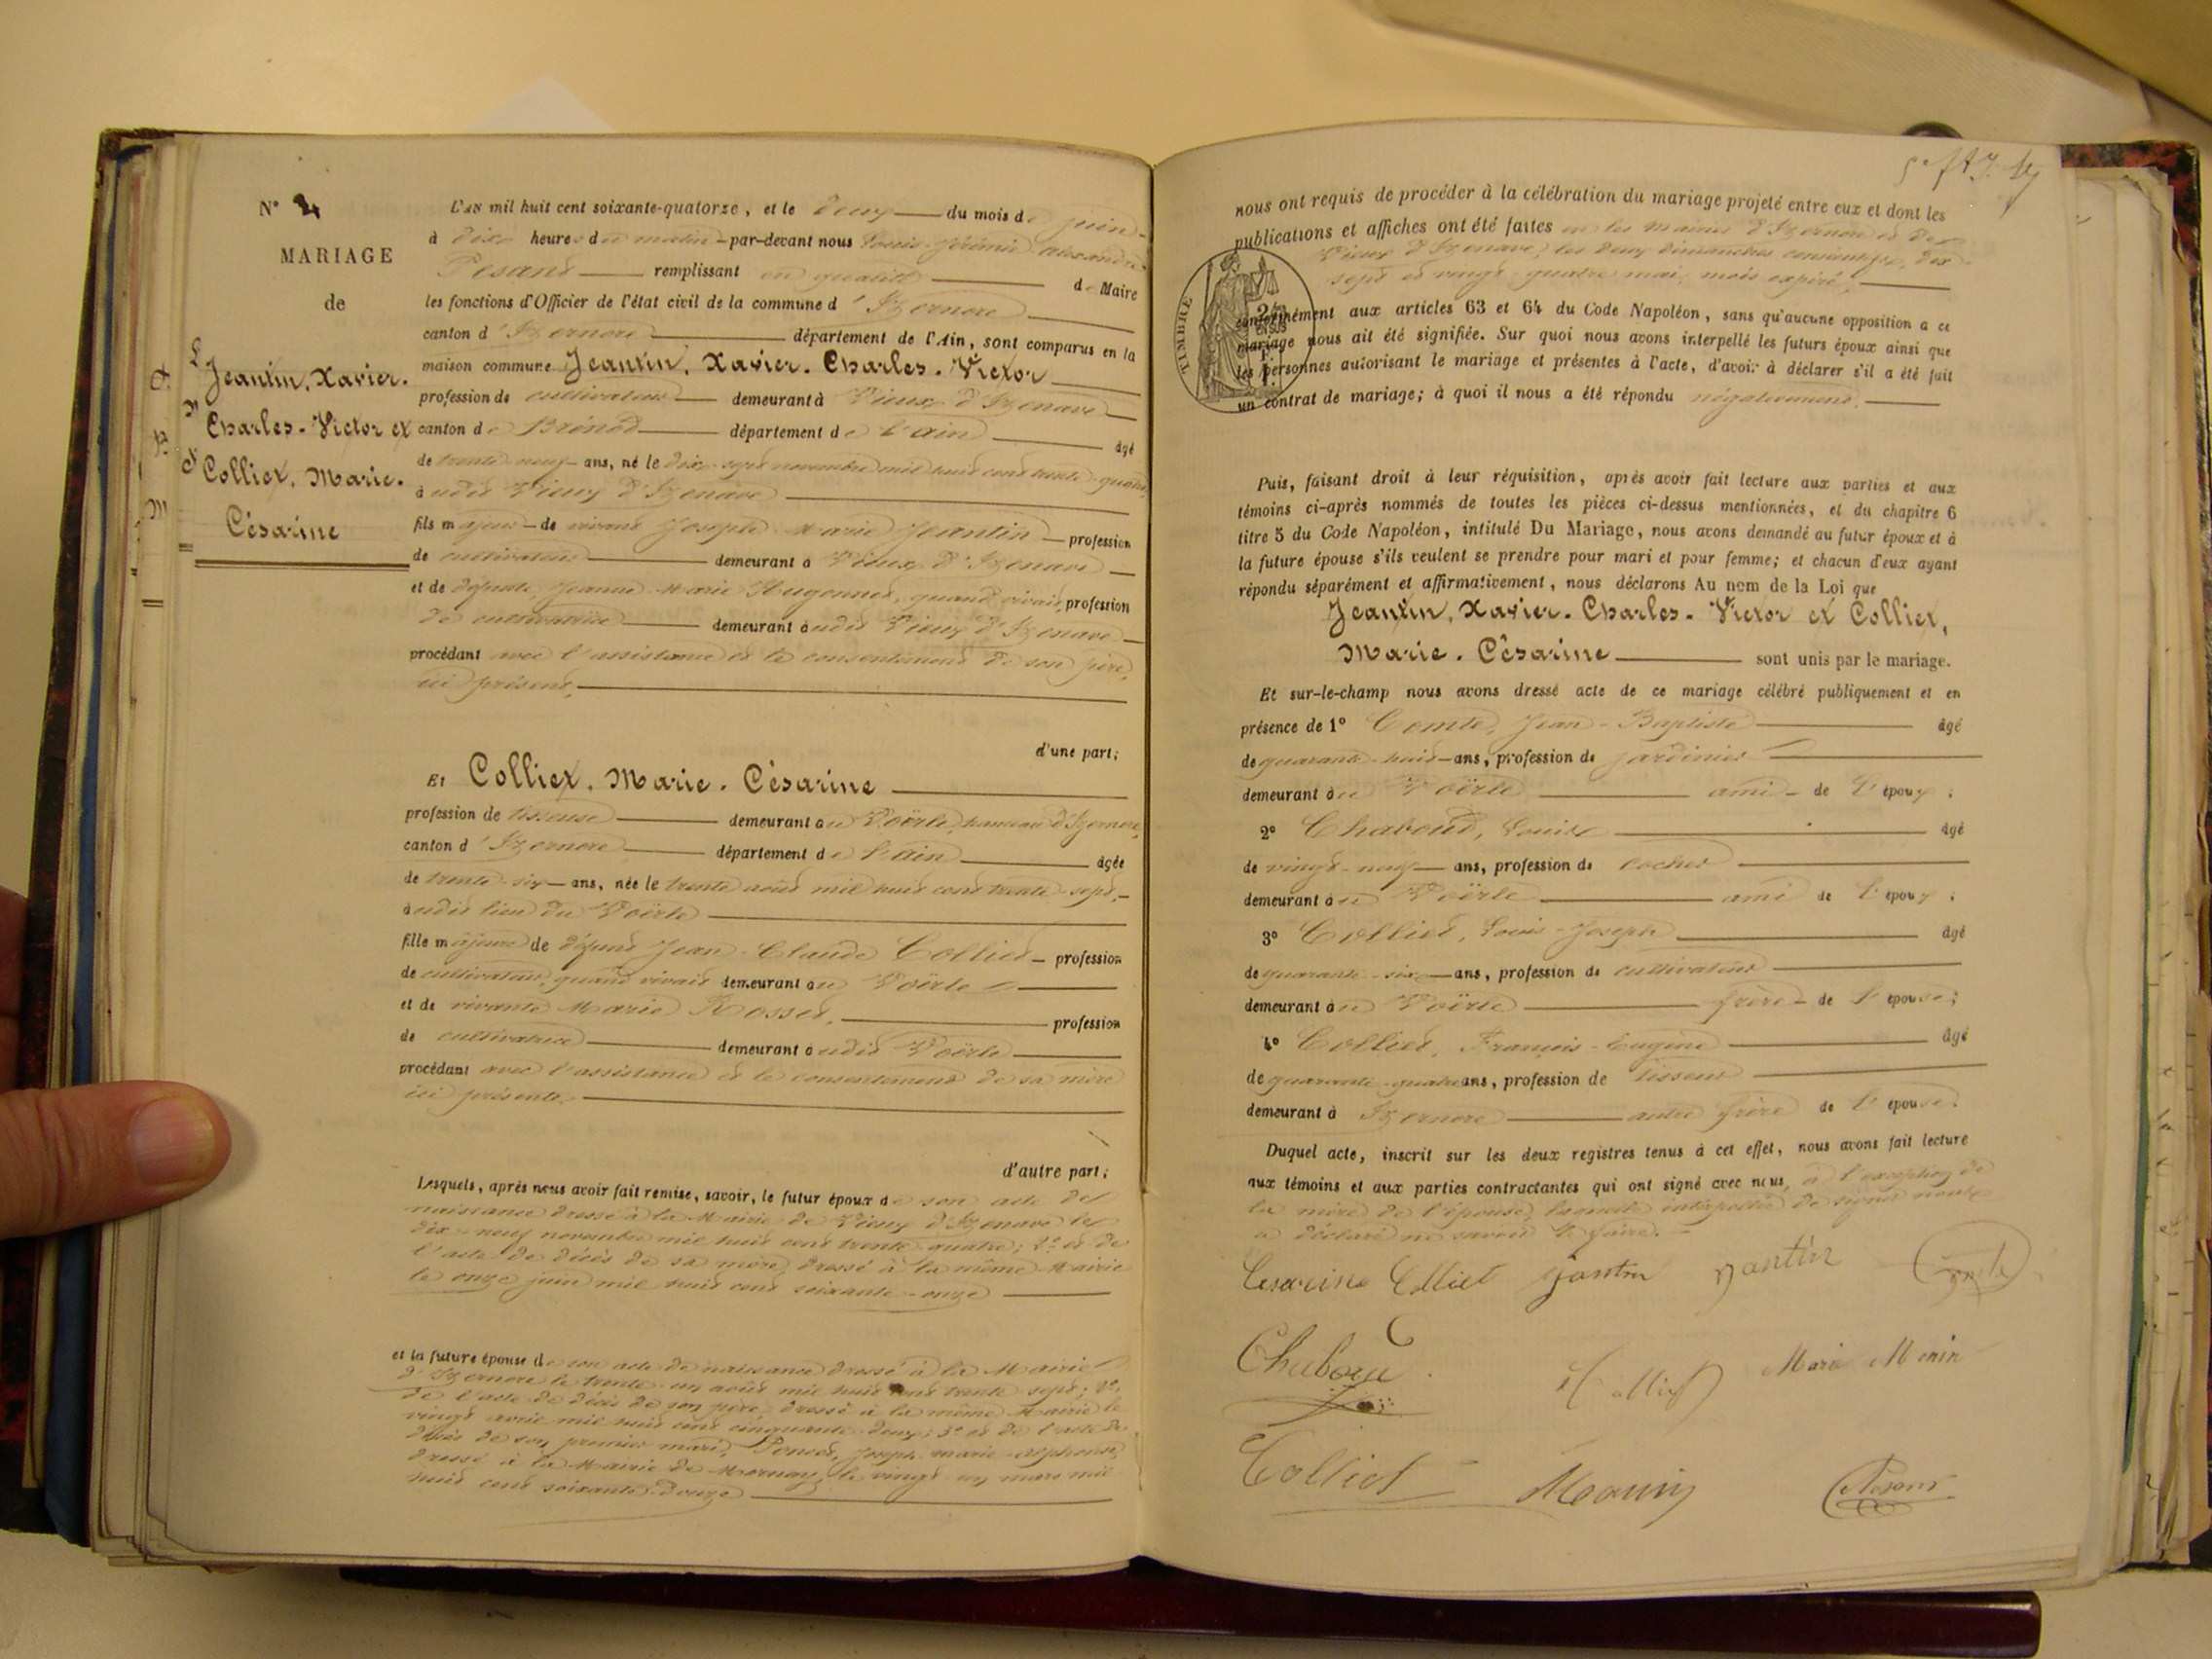 N° 4
MARIAGE
de
Jeantin, Xavier.
Charles-Victor et
Colliet, Marie.
Césarine
L'AN mil huit cent soixante-quatorze, et le deux du mois de juin
à dix heures du matin par-devant nous Louis Jérémie Alexandre
Pesant remplissant en qualité de Maire
les fonctions d'Officier de l'état civil de la commune d'Izernore
canton d'Izernore département de l'Ain, sont comparus en la
maison commune Jeantin, Xavier. Charles. Victor
profession de cultivateur demeurant à Vieux d'Izenave
canton de Brénod département de l'Ain âgé
de trente neuf ans, né le dix-sept novembre mil huit cent trente quatre
audit Vieux d'Izenave
fils majeur de vivant Joseph Marie Jeantin profession
de cultivateur demeurant à Vieux d'Izenave
et de défunte Jeanne Marie Hugonnet, quand vivait, profession
de cultivatrice demeurant audit Vieux d'Izenave
procédant avec l'assistance et le consentement de son père,
ici présent,
d'une part;
Et Colliet. Marie. Césarine
profession de tisseuse demeurant au Voërle, hameau d'Izernore,
canton d'Izernore département de l'Ain âgée
de trente-six ans, née le trente août mil huit cent trente-sept,
audit lieu du Voërle
fille majeure de défunt Jean-Claude Colliet profession
de cultivateur, quand vivait demeurant au Voërle
et de vivante Marie Rosset, profession
de cultivatrice demeurant audit Voërle
procédant avec l'assistance et le consentement de sa mère
ici présente.
d'autre part;
Lesquels, après nous avoir fait remise, savoir, le futur époux de son acte de
naissance dressé à la Mairie de Vieux d'Izenave le
dix-neuf novembre mil huit cent trente quatre; 2° et de
l'acte de décès de sa mère, dressé à la même Mairie
le onze juin mil huit cent soixante-onze
et la future épouse de son acte de naissance dressé à la Mairie
d'Izernore le trente-un août mil huit cent trente sept; 2°
de l'acte de décès de son père, dressé à la même Mairie le
vingt avril mil huit cent cinquante-deux; 3° et de l'acte de
décès de son premier mari, Poncet, Joseph-Marie-Alphonse,
dressé à la Mairie de Mornay, le vingt-un mars mil
huit cent soixante-douze
nous ont requis de procéder à la célébration du mariage projeté entre eux et dont les
publications et affiches ont été faites en les Mairies d'Izernore et de
Vieux d'Izenave, les deux dimanches consécutifs, dix
sept et vingt-quatre mai, mois expiré,
TIMBRE
conformément aux articles 63 et 64 du Code Napoléon, sans qu'aucune opposition a ce
mariage nous ait été signifiée. Sur quoi nous avons interpellé les futurs époux ainsi que
les personnes autorisant le mariage et présentes à l'acte, d'avoir à déclarer s'il a été fait
un contrat de mariage; à quoi il nous a été répondu négativement.
Puis, faisant droit à leur réquisition, après avoir fait lecture aux parties et aux
témoins ci-après nommés de toutes les pièces ci-dessus mentionnées, et du chapitre 6
titre 5 du Code Napoléon, intitulé Du Mariage, nous avons demandé au futur époux et à
la future épouse s'ils veulent se prendre pour mari et pour femme; et chacun d'eux ayant
répondu séparément et affirmativement, nous déclarons Au nom de la Loi que
Jeantin, Xavier. Charles. Victor et Colliet,
Marie. Césarine sont unis par le mariage.
Et sur-le-champ nous avons dressé acte de ce mariage célébré publiquement et en
présence de 1° Comte, Jean-Baptiste âgé
de quarante-huit ans, profession de jardinier
demeurant au Voërle ami de l'époux;
2° Chaboud, Louis âgé
de vingt-neuf ans, profession de cocher
demeurant au Voërle ami de l'époux;
3° Colliet, Louis-Joseph âgé
de quarante-six ans, profession de cultivateur
demeurant au Voërle frère de l'épouse;
4° Colliet, François-Eugène âgé
de quarante-quatre ans, profession de tisseur
demeurant à Izernore autre frère de l'épouse.
Duquel acte, inscrit sur les deux registres tenus à cet effet, nous avons fait lecture
aux témoins et aux parties contractantes qui ont signé avec nous, à l'exception de
la mère de l'épouse, laquelle interpellée de signer
a déclaré ne savoir le faire.
Cesarine Colliet Jantin Jantin Comte
Chaboud Colliet Marie Monin
Colliet Pesant